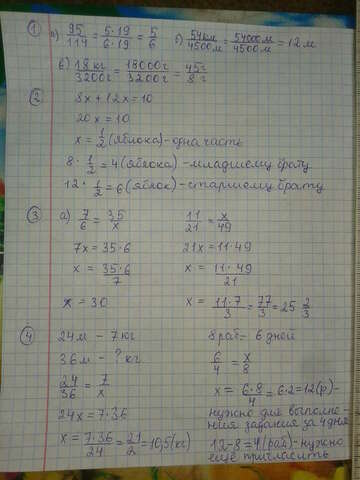 ① а) 95/114 = 5·19/6·19 = 5/6 б) 54км/4500м = 54000м/4500м = 12м
в) 18кг/3200г = 18000г/3200г = 45г/8г
② 8x + 12x = 10
20x = 10
x = 1/2 (яблока) - одна часть
8 · 1/2 = 4 (яблока) - младшему брату
12 · 1/2 = 6 (яблок) - старшему брату
③ а) 7/6 = 35/x 11/21 = x/49
7x = 35·6 21x = 11·49
x = 35·6/7 x = 11·49/21
x = 30 x = 11·7/3 = 77/3 = 25 2/3
④ 24м - 7кг 8 раб = 6 дней
36м - ? кг 6/4 = x/8
24/36 = 7/x x = 6·8/4 = 6·2 = 12(р) -
24x = 7·36 нужно для выполне-
ния задания за 4 дня
x = 7·36/24 = 21/2 = 10,5(кг) 12-8=4(раб) - нужно
ещё пригласить